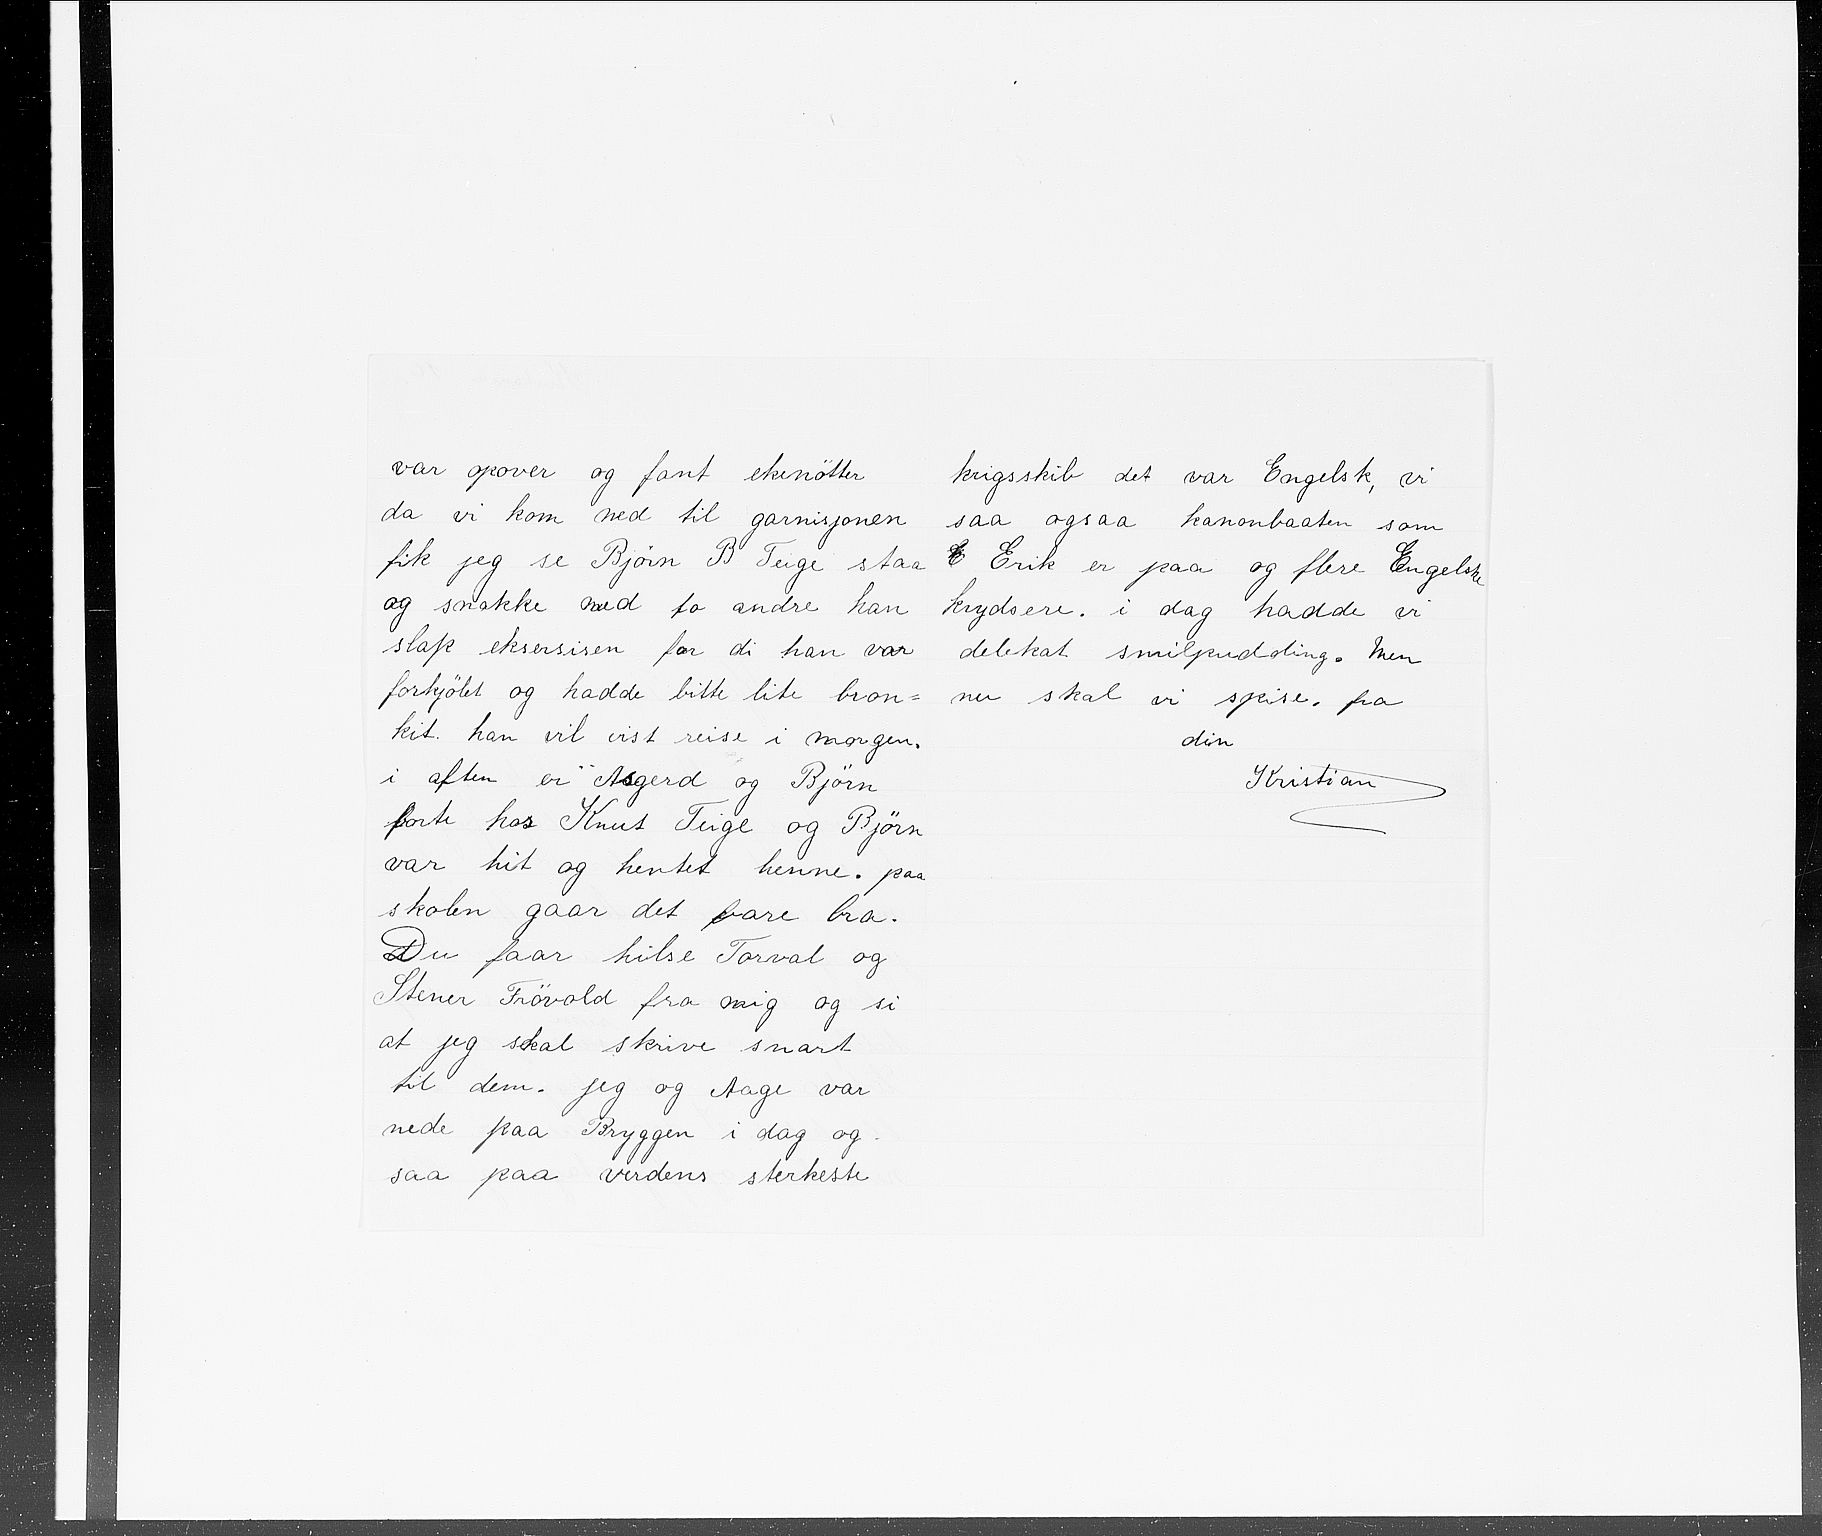 var opover og fant ekenötter
da vi kom ned til garnisjonen
fik jeg se Bjørn B Teige staa
og snakke med to andre han
slap eksersisen for di han var
forkjølet og hadde bitte lite bron=
kit. han vil vist reise i morgen.
i aften er Asgerd og Bjørn
borte hos Knut Teige og Bjørn
var hit og hentet henne. paa
skolen gaar det bare bra.
Du faar hilse Torval og
Stener Frövold fra mig og si
at jeg skal skrive snart
til dem. jeg og Aage var
nede paa Bryggen i dag og
saa paa verdens sterkeste
krigsskib det var Engelsk, vi
saa ogsaa kanonbaaten som
Erik er paa og flere Engelske
krydsere. i dag hadde vi
delekat smilpudding. Men
nu skal vi spise. fra
din
Kristian